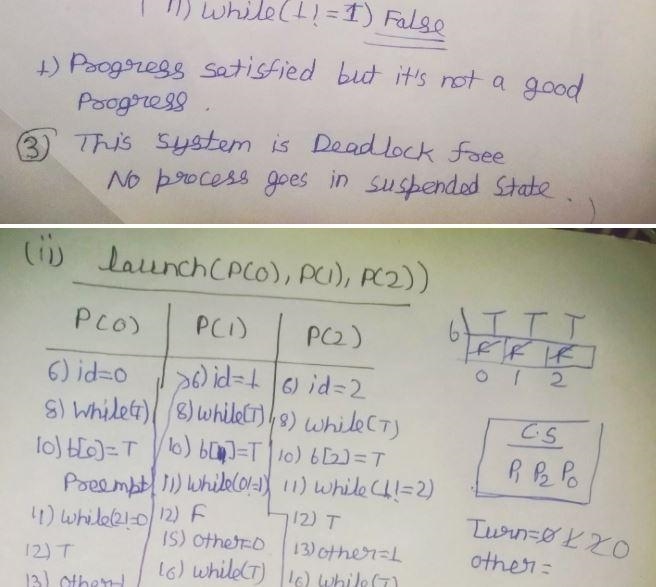 11) while(1!=1) False
1) Progress satisfied but it's not a good
Progress.
③ This system is Deadlock free
No process goes in suspended state.
(ii) launch(P(0), P(1), P(2))
P(0) P(1) P(2)
6) id=0 6) id=1 6) id=2
8) While(T) 8) while(T) 8) while(T)
10) b[0]=T 10) b[1]=T 10) b[2]=T
Preempt 11) while(0!=1) 11) while(1!=2)
11) while(2!=0) 12) F 12) T
12) T 15) other=0 13) other=1
13) other=1 16) while(T) 16) while(T)
b T T T
F F F
0 1 2
C.S
P1 P2 P0
Turn=0 1 2 0
other=